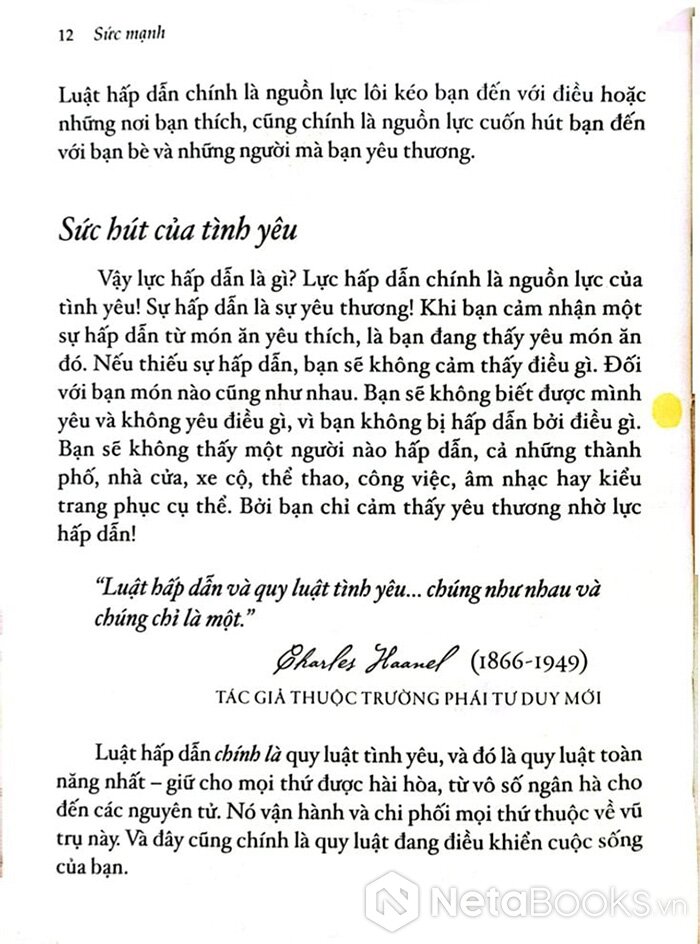 12 Sức mạnh
Luật hấp dẫn chính là nguồn lực lôi kéo bạn đến với điều hoặc
những nơi bạn thích, cũng chính là nguồn lực cuốn hút bạn đến
với bạn bè và những người mà bạn yêu thương.
Sức hút của tình yêu
Vậy lực hấp dẫn là gì? Lực hấp dẫn chính là nguồn lực của
tình yêu! Sự hấp dẫn là sự yêu thương! Khi bạn cảm nhận một
sự hấp dẫn từ món ăn yêu thích, là bạn đang thấy yêu món ăn
đó. Nếu thiếu sự hấp dẫn, bạn sẽ không cảm thấy điều gì. Đối
với bạn món nào cũng như nhau. Bạn sẽ không biết được mình
yêu và không yêu điều gì, vì bạn không bị hấp dẫn bởi điều gì.
Bạn sẽ không thấy một người nào hấp dẫn, cả những thành
phố, nhà cửa, xe cộ, thể thao, công việc, âm nhạc hay kiểu
trang phục cụ thể. Bởi bạn chỉ cảm thấy yêu thương nhờ lực
hấp dẫn!
“Luật hấp dẫn và quy luật tình yêu... chúng như nhau và
chúng chỉ là một.”
Charles Haanel (1866-1949)
TÁC GIẢ THUỘC TRƯỜNG PHÁI TƯ DUY MỚI
Luật hấp dẫn chính là quy luật tình yêu, và đó là quy luật toàn
năng nhất – giữ cho mọi thứ được hài hòa, từ vô số ngân hà cho
đến các nguyên tử. Nó vận hành và chi phối mọi thứ thuộc về vũ
trụ này. Và đây cũng chính là quy luật đang điều khiển cuộc sống
của bạn.
NetaBooks.vn